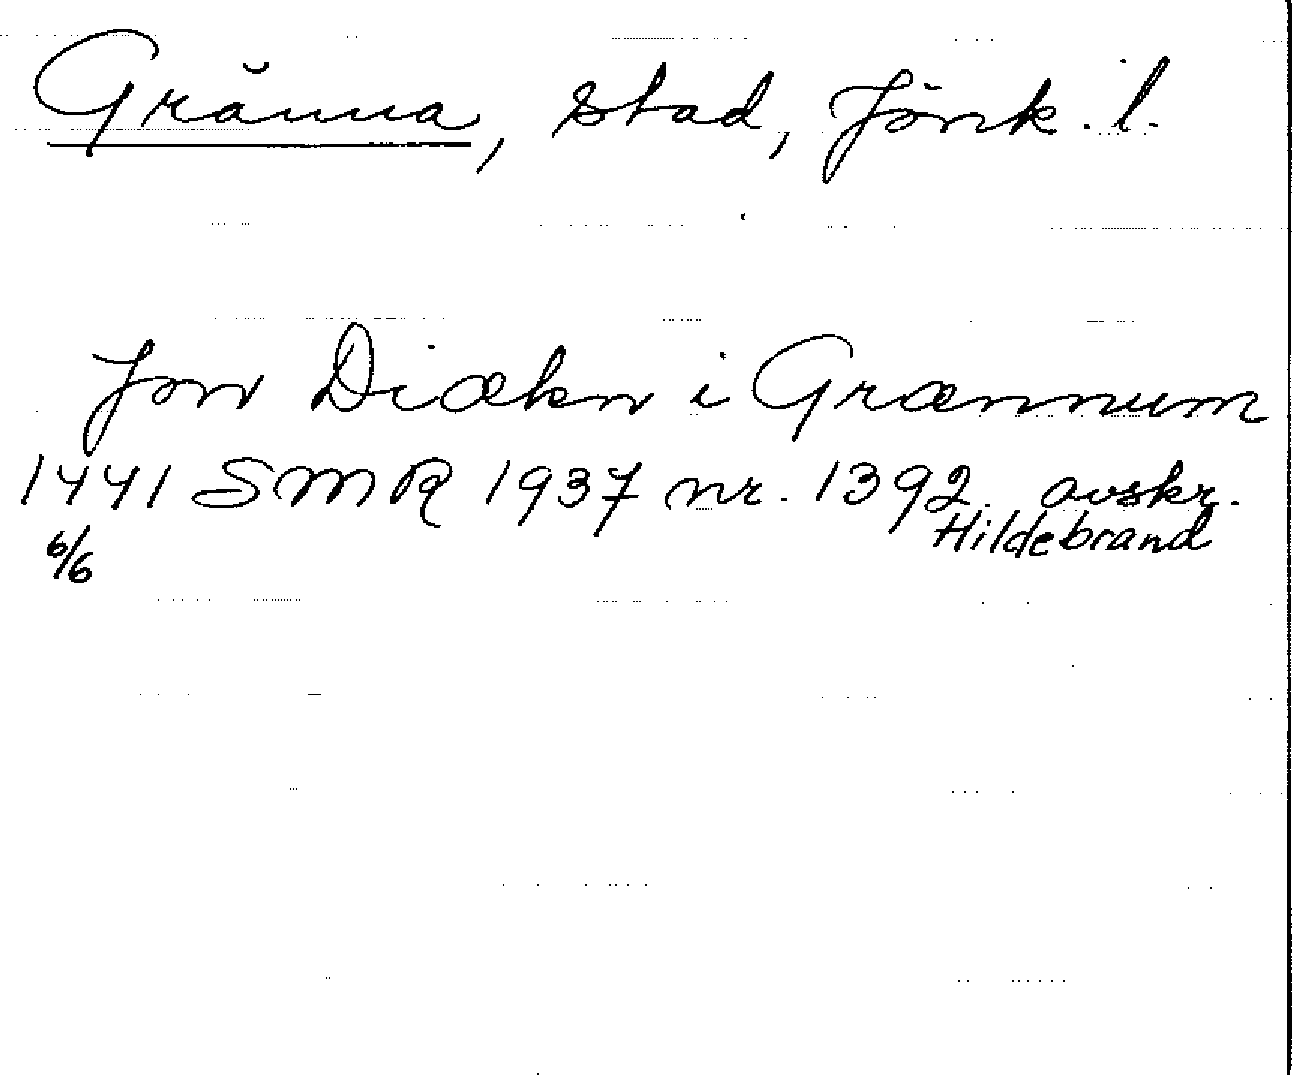 Gränna, stad, Jönk. l.
Jon Diækn i Grænnum
1441 SMR 1937 nr. 1392 avskr.
6/6 Hildebrand